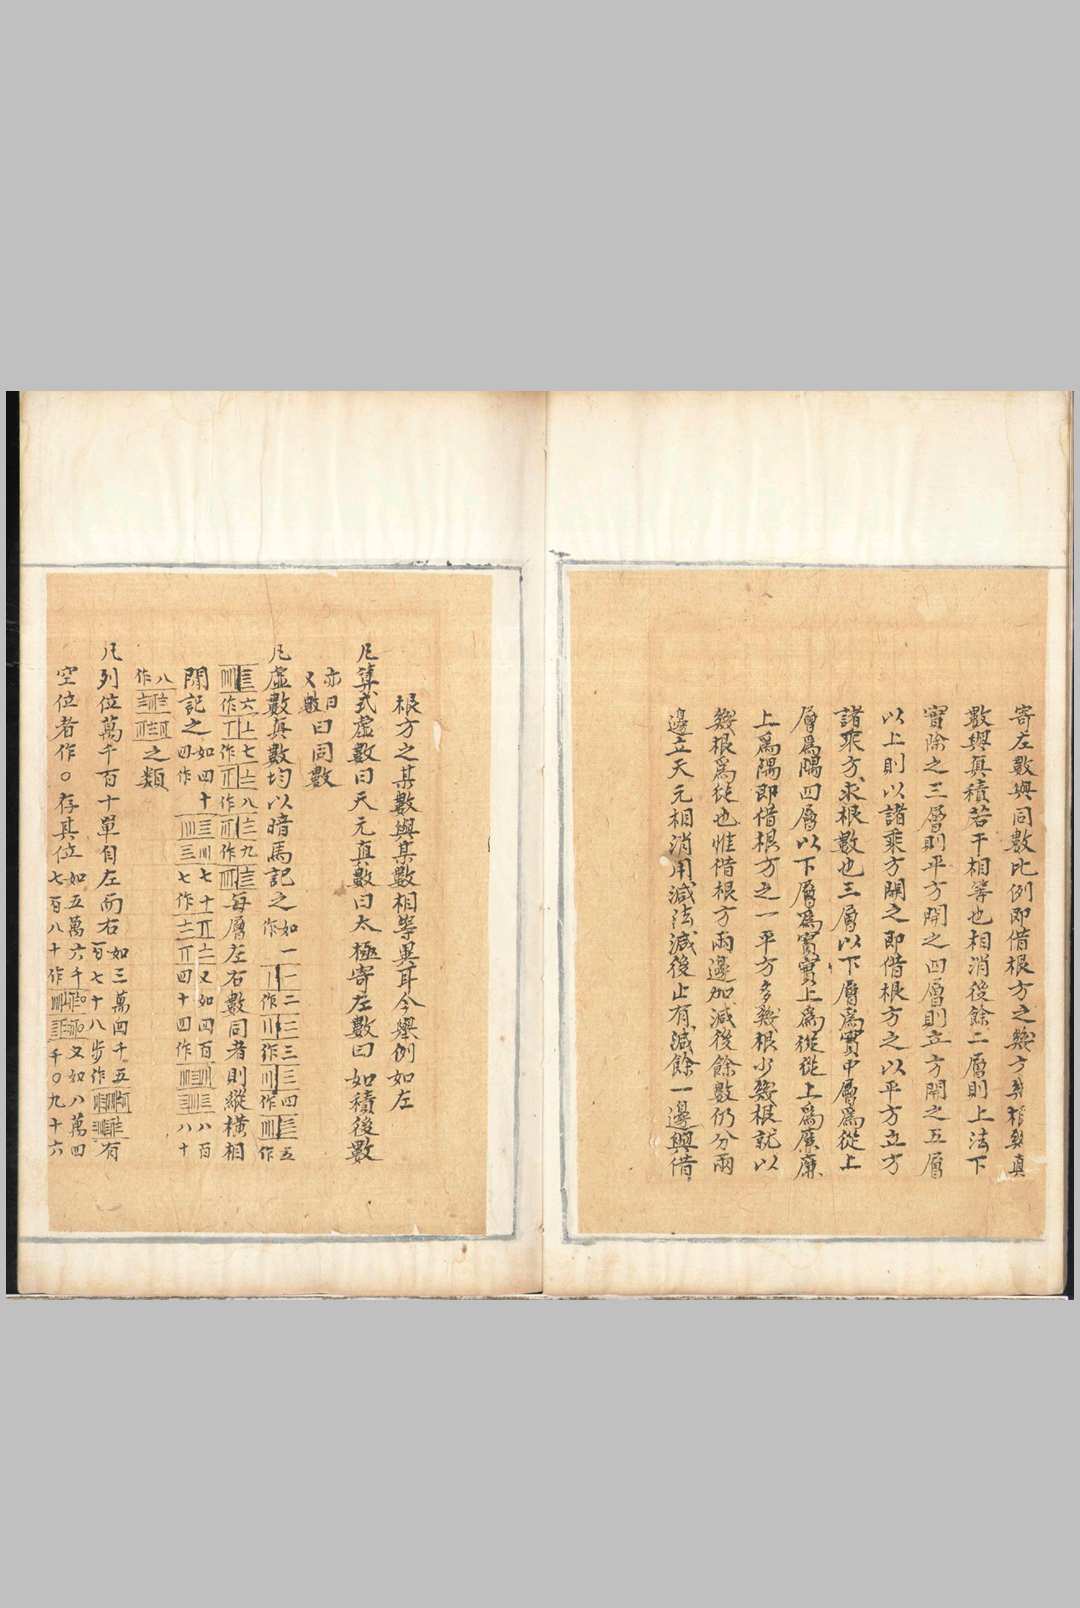 寄左數與同數比例即借根方之幾方幾根與真
數與真積若干相等也相消後餘二層則上法下
實除之三層則平方開之四層則立方開之五層
以上則以諸乘方開之即借根方之以平方立方
諸乘方求根數也三層以下層為實中層為從上
層為隅四層以下層為實實上為從從上為廉廉
上為隅即借根方之一平方多幾根少幾根就以
幾根為從也惟借根方兩邊加減後餘數仍分兩
邊立天元相消用減法減後止有減餘一邊與借
根方之某數與某數相等異耳今舉例如左
凡算式虛數曰天元真數曰太極寄左數曰如積後數
亦曰又數曰同數
凡虛數真數均以暗馬記之如一作二作三作四作五
作六作七作八作九作每層左右數同者則縱橫相
間記之如四十四作七十七作又如四百四十四作八百八十
八作之類
凡列位萬千百十單自左而右如三萬四千五百七十八步作有
空位者作〇存其位如五萬六千七百八十作又如八萬四千〇九十六